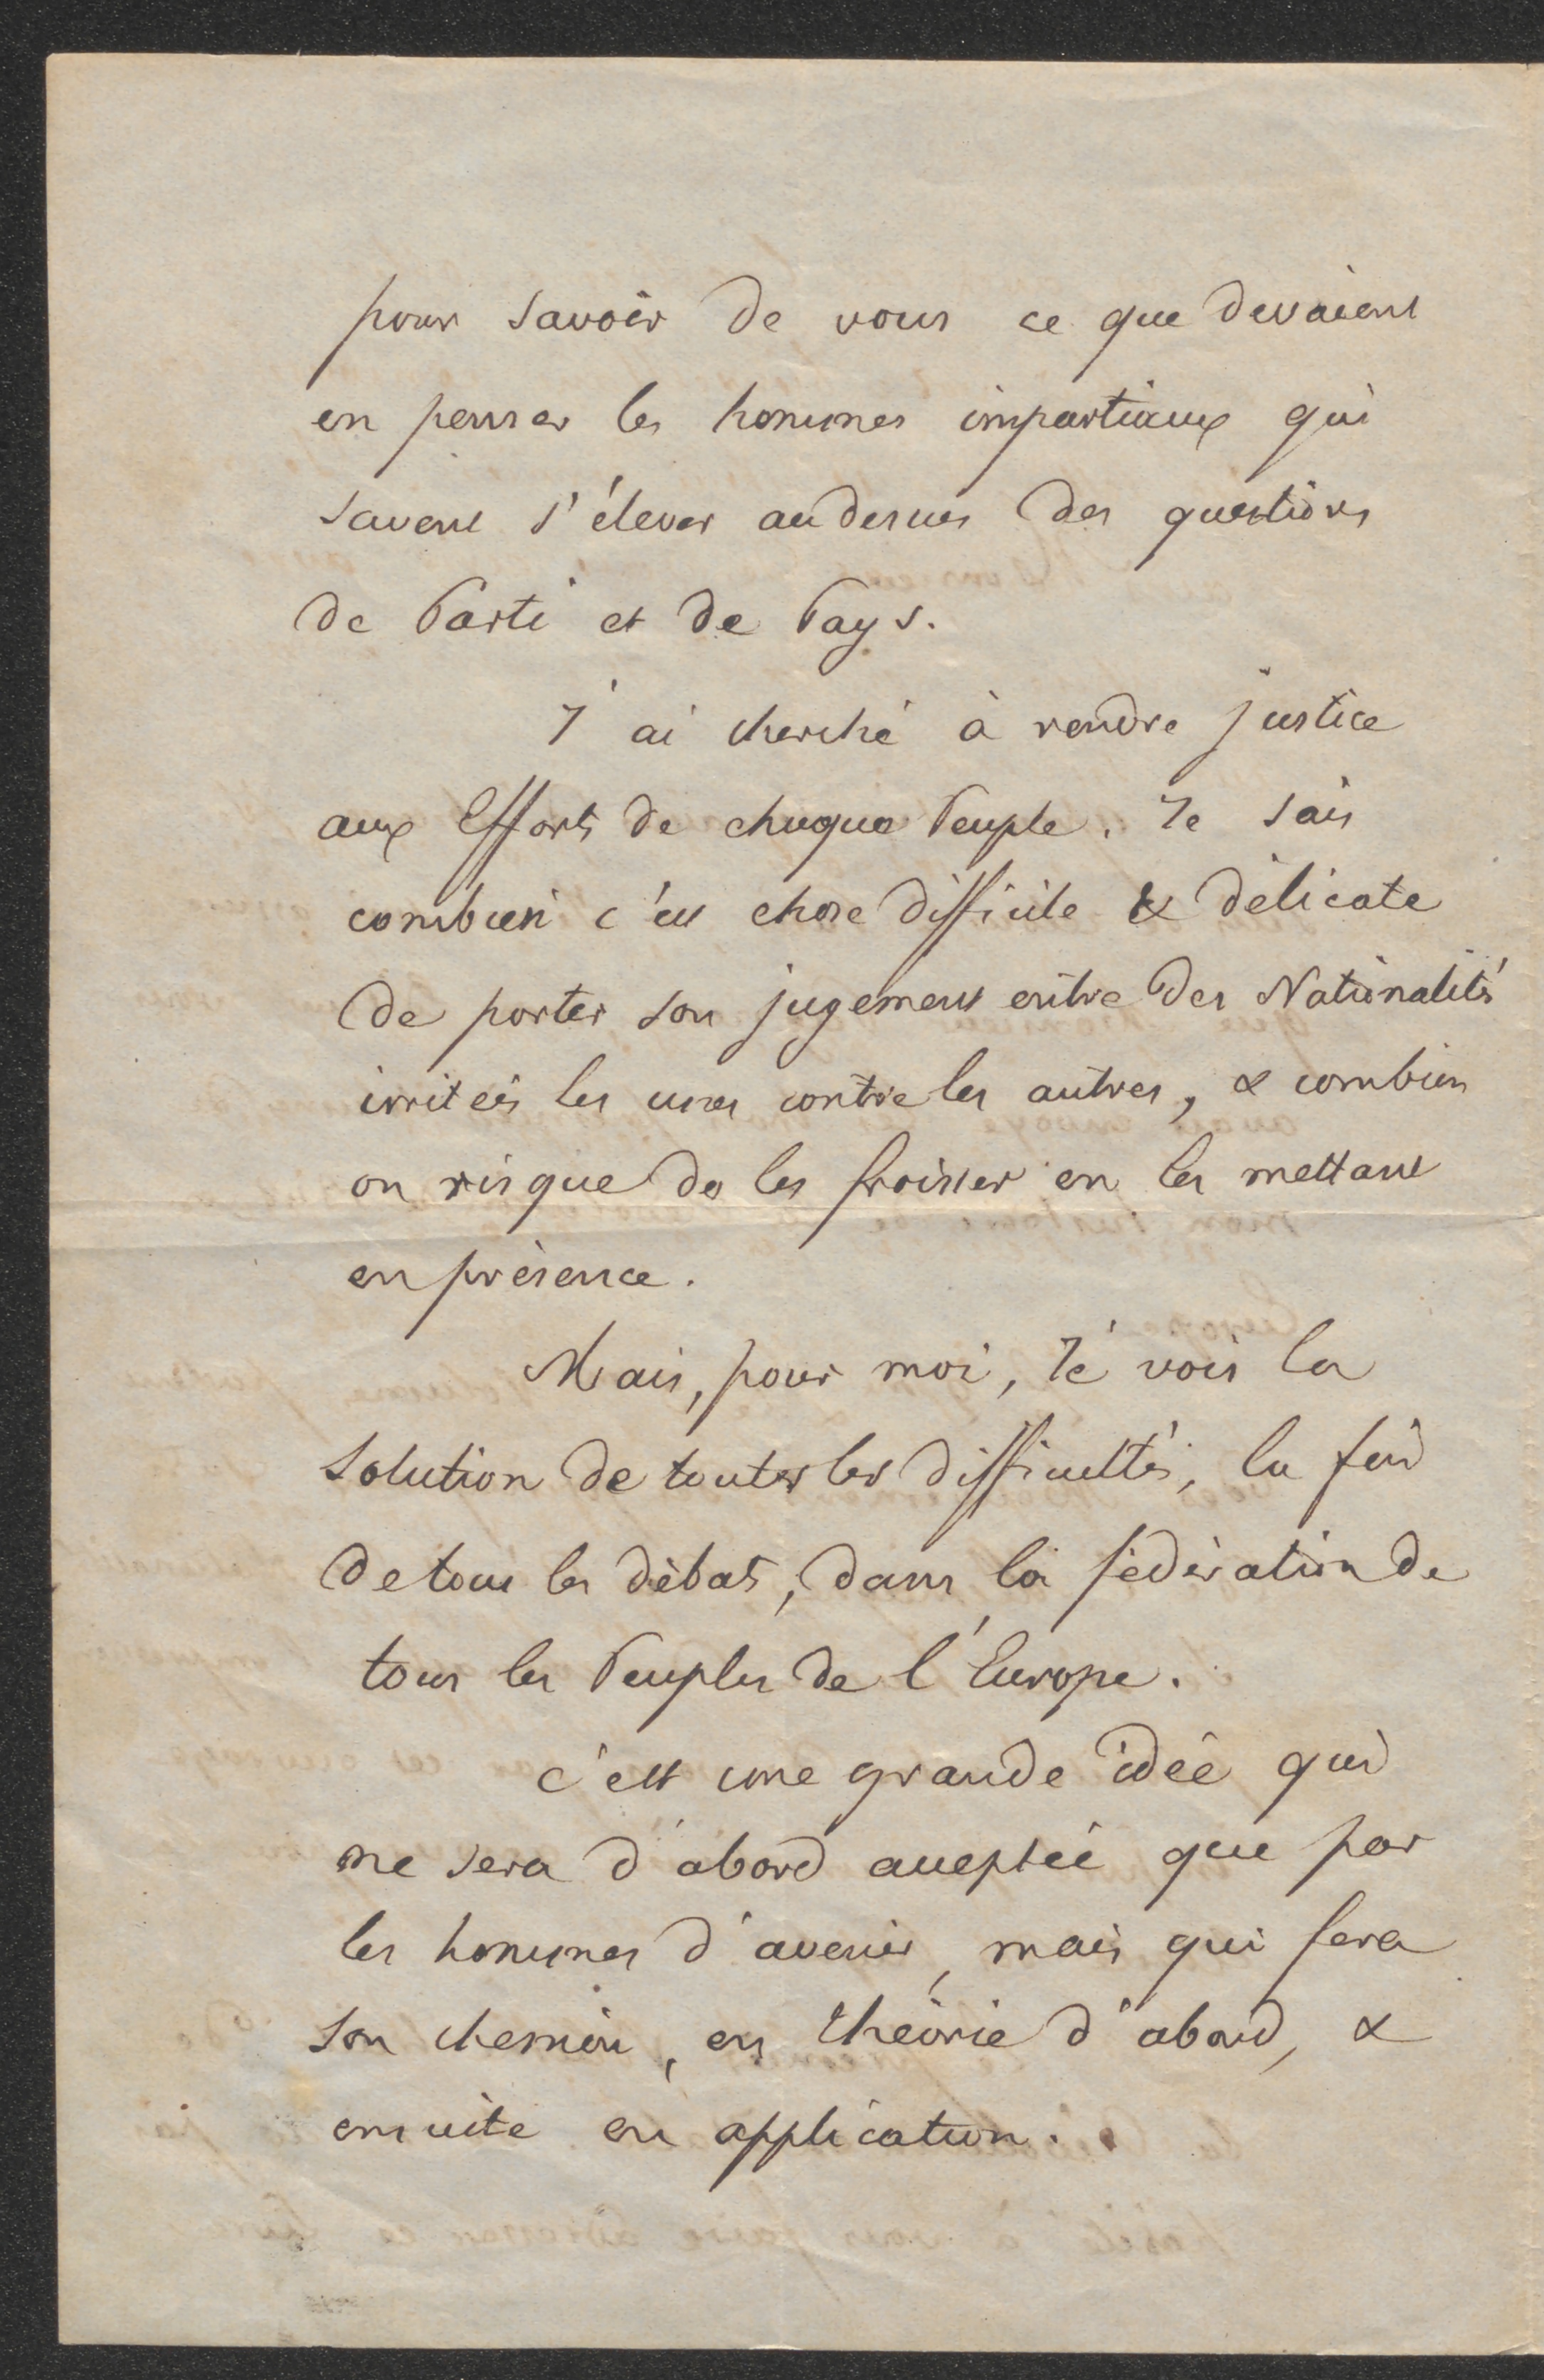 pour savoir de vous ce que devaient
en penser les hommes impartiaux qui
savent s'élever audessus des questions
de Parti et de Pays.
J'ai cherché à rendre justice
aux Efforts de chaque Peuple. Je sais
combien c'est chose difficile & délicate
de porter son jugement entre des Nationalités
irritées les unes contre les autres, & combien
on risque de les froisser en les mettant
en présence.
Mais, pour moi, Je vois la
solution de toutes les difficultés, la fin
de tous les débats, dans la fédération de
tous les Peuples de l'Europe.
c'est une grande idée qui
ne sera d'abord acceptée que par
les hommes d'avenir, mais qui fera
son chemin, en théorie d'abord, &
ensuite en application.